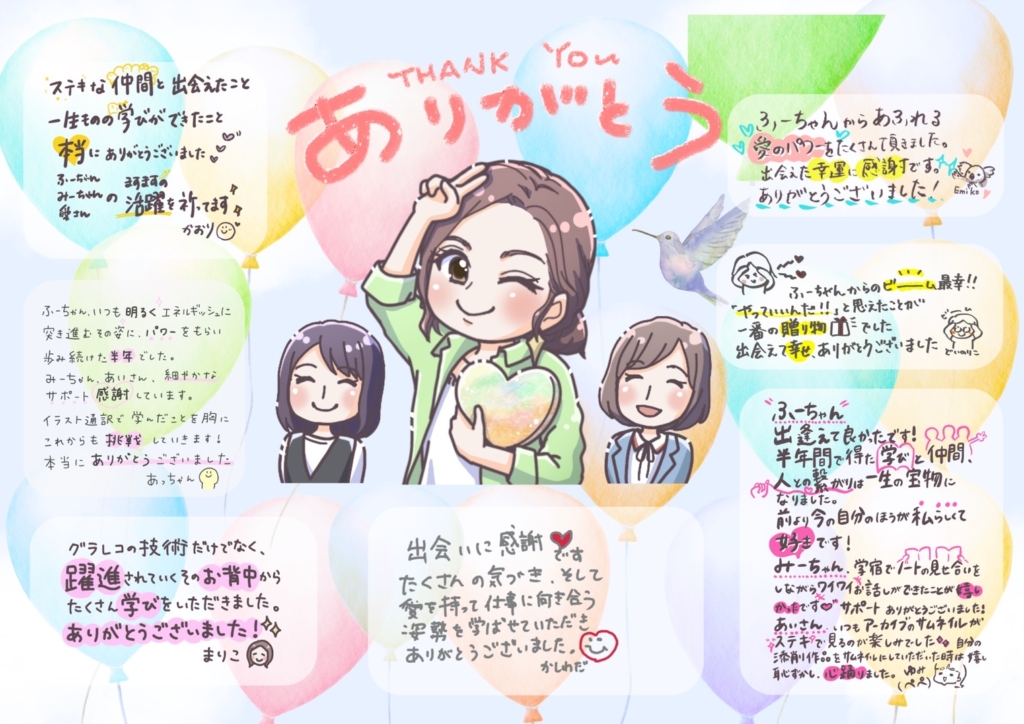 THANK YOU
ありがとう
ステキな仲間と出会えたこと
一生ものの学びができたこと
本当にありがとうございました
ふーちゃん
みーちゃん
愛さん
のますますの
活躍を祈ってます
かおり
ふーちゃんからあふれる
愛のパワーをたくさん頂きました。
出会えた幸運に感謝です。
ありがとうございました!
Emiko
ふーちゃんからのビーーム最幸!!
"やっていいんだ!!"と思えたことが
一番の贈り物でした
出会えて幸せ ありがとうございました
どいのりこ
ふーちゃん、いつも明るくエネルギッシュに
突き進むその姿に、パワーをもらい
歩み続けた半年でした。
みーちゃん、あいさん、細やかな
サポート感謝しています。
イラスト通訳で学んだことを胸に
これからも挑戦していきます!
本当にありがとうございました
あっちゃん
ふーちゃん
出逢えて良かったです!
半年間で得た学びと仲間、
人との繋がりは一生の宝物に
なりました。
前より今の自分のほうが私らしくて
好きです!
みーちゃん、学宿でノートの見せ合いを
しながらワイワイお話しができたことが嬉し
かったです サポートありがとうございました!
あいさん、いつもアーカイブのサムネイルが
ステキで見るのが楽しみでした 自分の
添削作品をサムネイルにしていただいた時は嬉し
恥ずかし、心踊りました。ゆみ
(ぺぺ)
グラレコの技術だけでなく、
躍進されていくそのお背中から
たくさん学びをいただきました。
ありがとうございました!
まりこ
出会いに感謝です
たくさんの気づき、そして
愛を持って仕事に向き合う
姿勢を学ばせていただき
ありがとうございました。
かしわだ